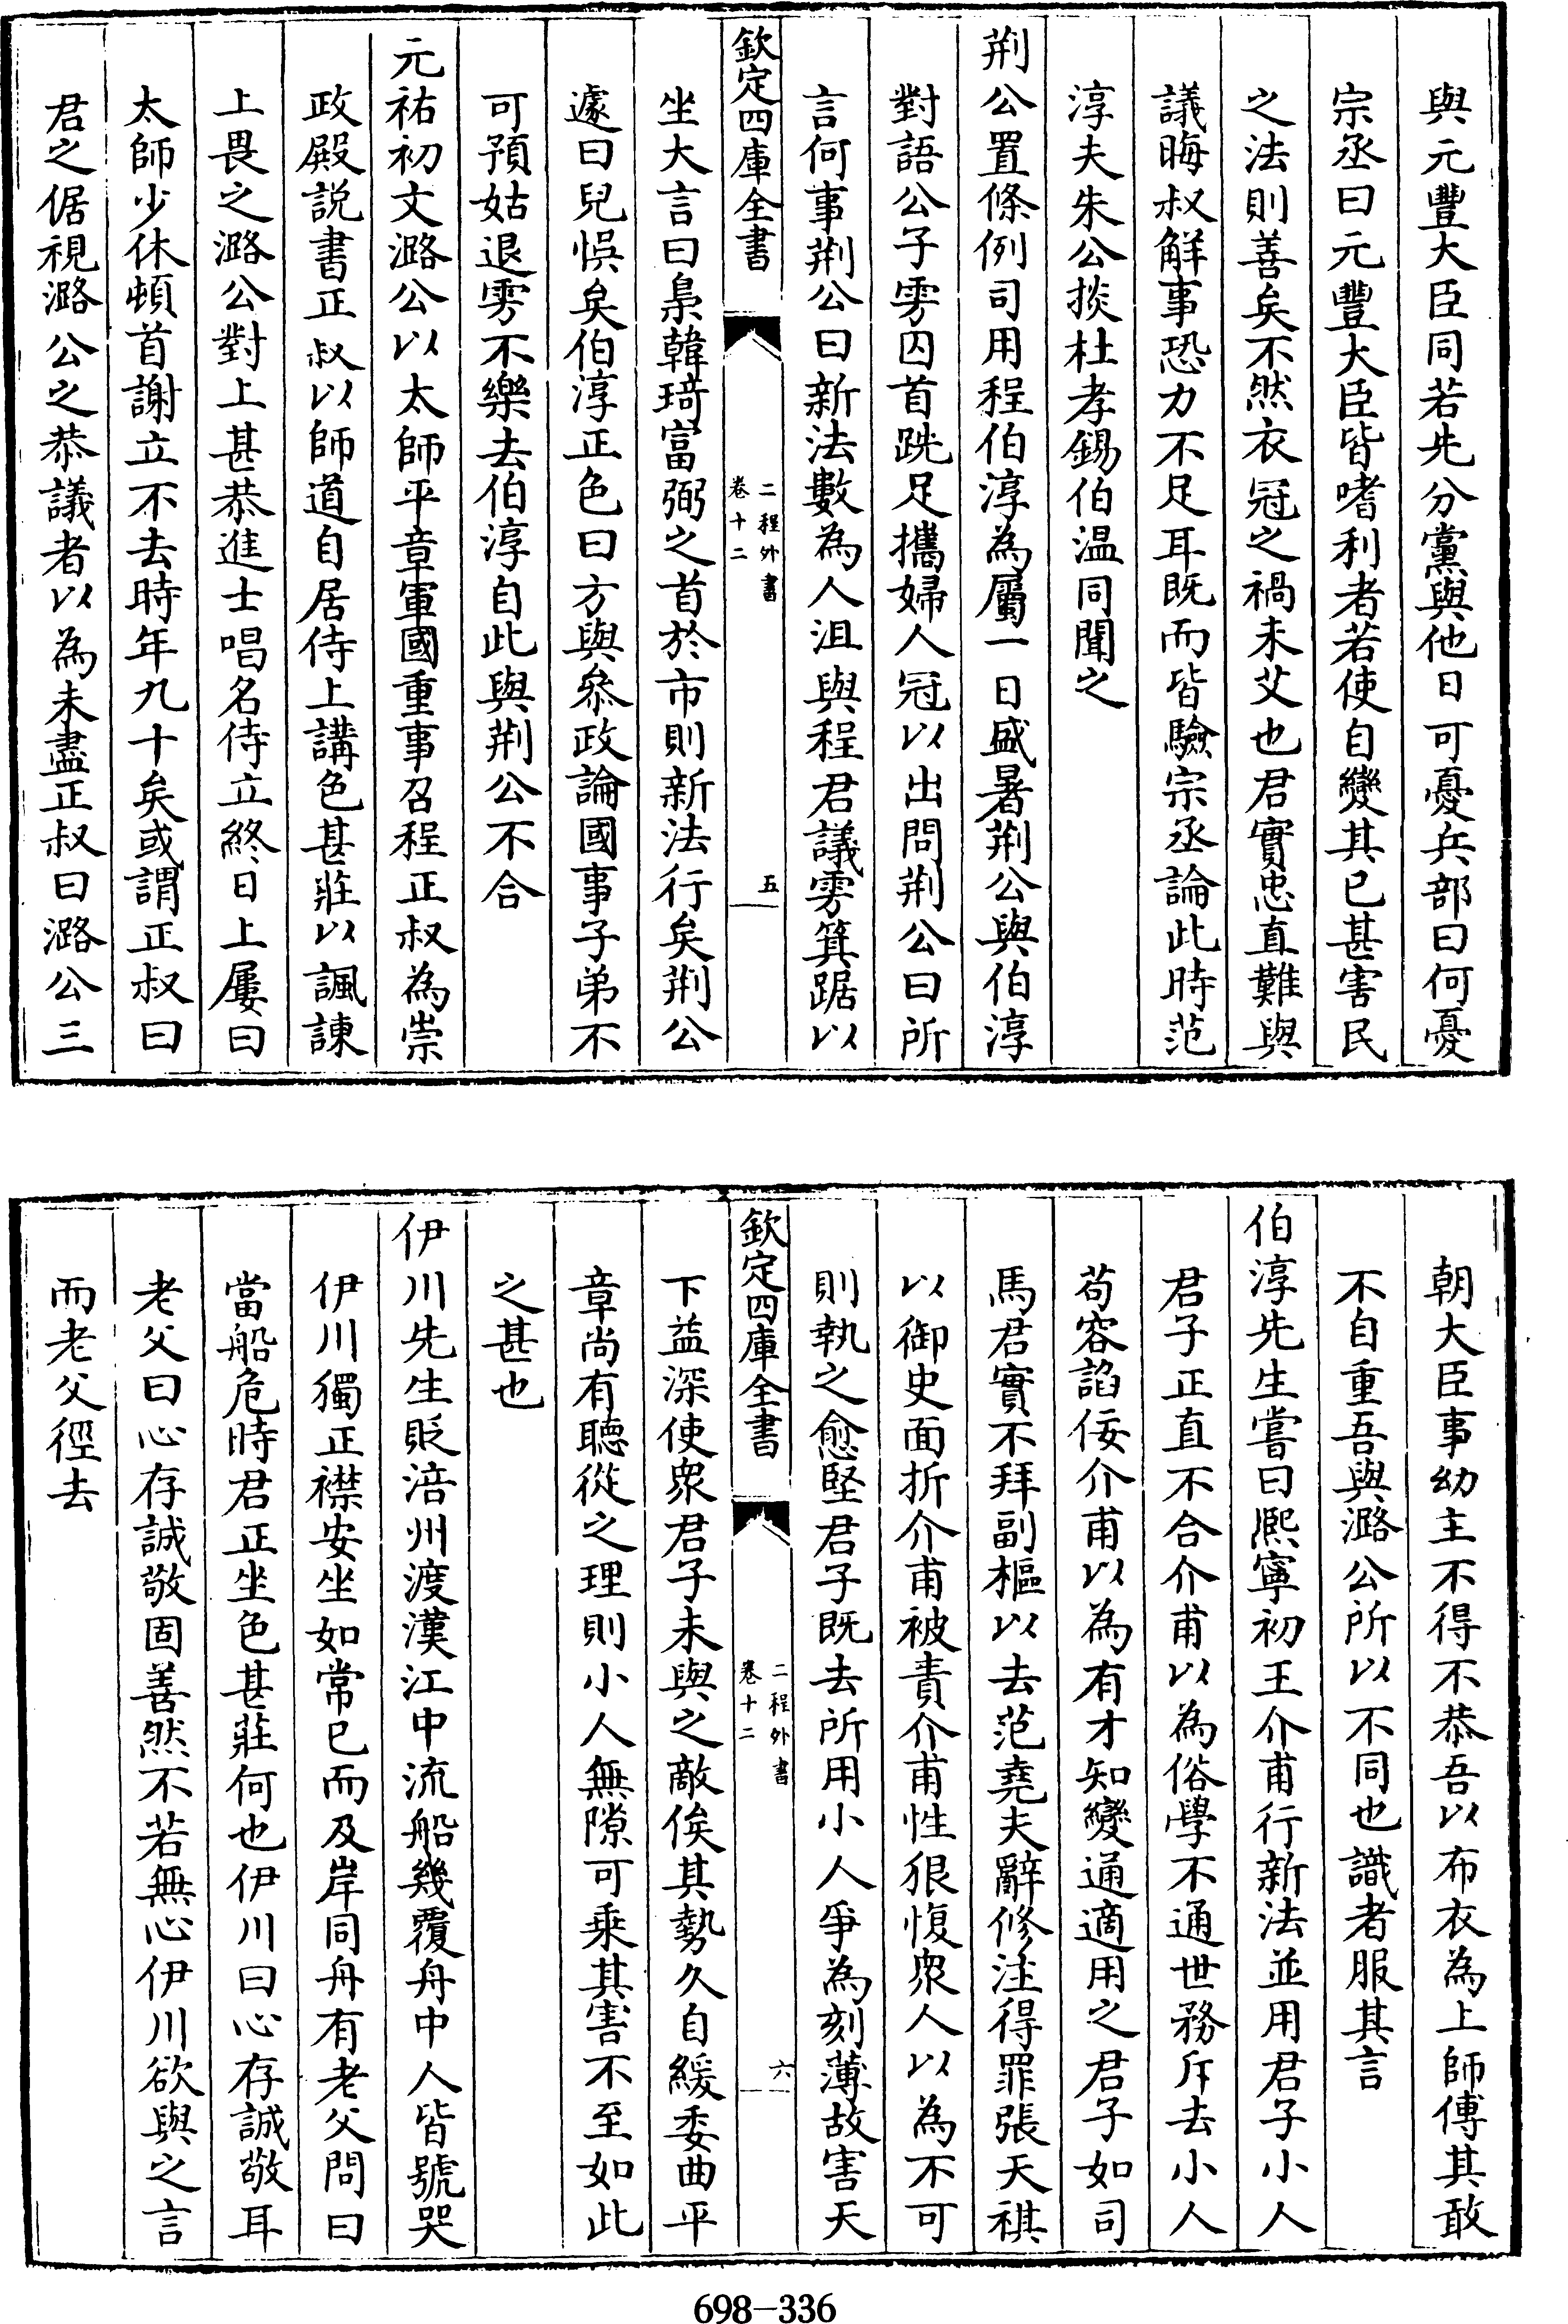 與元豐大臣同若先分黨與他日可憂兵部曰何憂
宗丞曰元豐大臣皆嗜利者若使自變其已甚害民
之法則善矣不然衣冠之禍未艾也君實忠直難與
議晦叔解事恐力不足耳既而皆驗宗丞論此時范
淳夫朱公掞杜孝錫伯溫同聞之
荆公置條例司用程伯淳為屬一日盛暑荆公與伯淳
對語公子雱囚首跣足攜婦人冠以出問荆公曰所
言何事荆公曰新法數為人沮與程君議雱箕踞以
欽定四庫全書
二程外書
卷十二
五
坐大言曰梟韓琦富弼之首於市則新法行矣荆公
遽曰兒悞矣伯淳正色曰方與叅政論國事子弟不
可預姑退雱不樂去伯淳自此與荆公不合
元祐初文潞公以太師平章軍國重事召程正叔為崇
政殿説書正叔以師道自居侍上講色甚莊以諷諫
上畏之潞公對上甚恭進士唱名侍立終日上屢曰
太師少休頓首謝立不去時年九十矣或謂正叔曰
君之倨視潞公之恭議者以為未盡正叔曰潞公三
朝大臣事幼主不得不恭吾以布衣為上師傅其敢
不自重吾與潞公所以不同也識者服其言
伯淳先生嘗曰熈寧初王介甫行新法並用君子小人
君子正直不合介甫以為俗學不通世務斥去小人
苟容諂佞介甫以為有才知變通適用之君子如司
馬君實不拜副樞以去范堯夫辭修注得罪張天祺
以御史面折介甫被責介甫性狠愎衆人以為不可
則執之愈堅君子既去所用小人爭為刻薄故害天
欽定四庫全書
二程外書
卷十二
六
下益深使衆君子未與之敵俟其勢久自緩委曲平
章尚有聽從之理則小人無隙可乘其害不至如此
之甚也
伊川先生貶涪州渡漢江中流船幾覆舟中人皆號哭
伊川獨正襟安坐如常已而及岸同舟有老父問曰
當船危時君正坐色甚莊何也伊川曰心存誠敬耳
老父曰心存誠敬固善然不若無心伊川欲與之言
而老父徑去
698-336